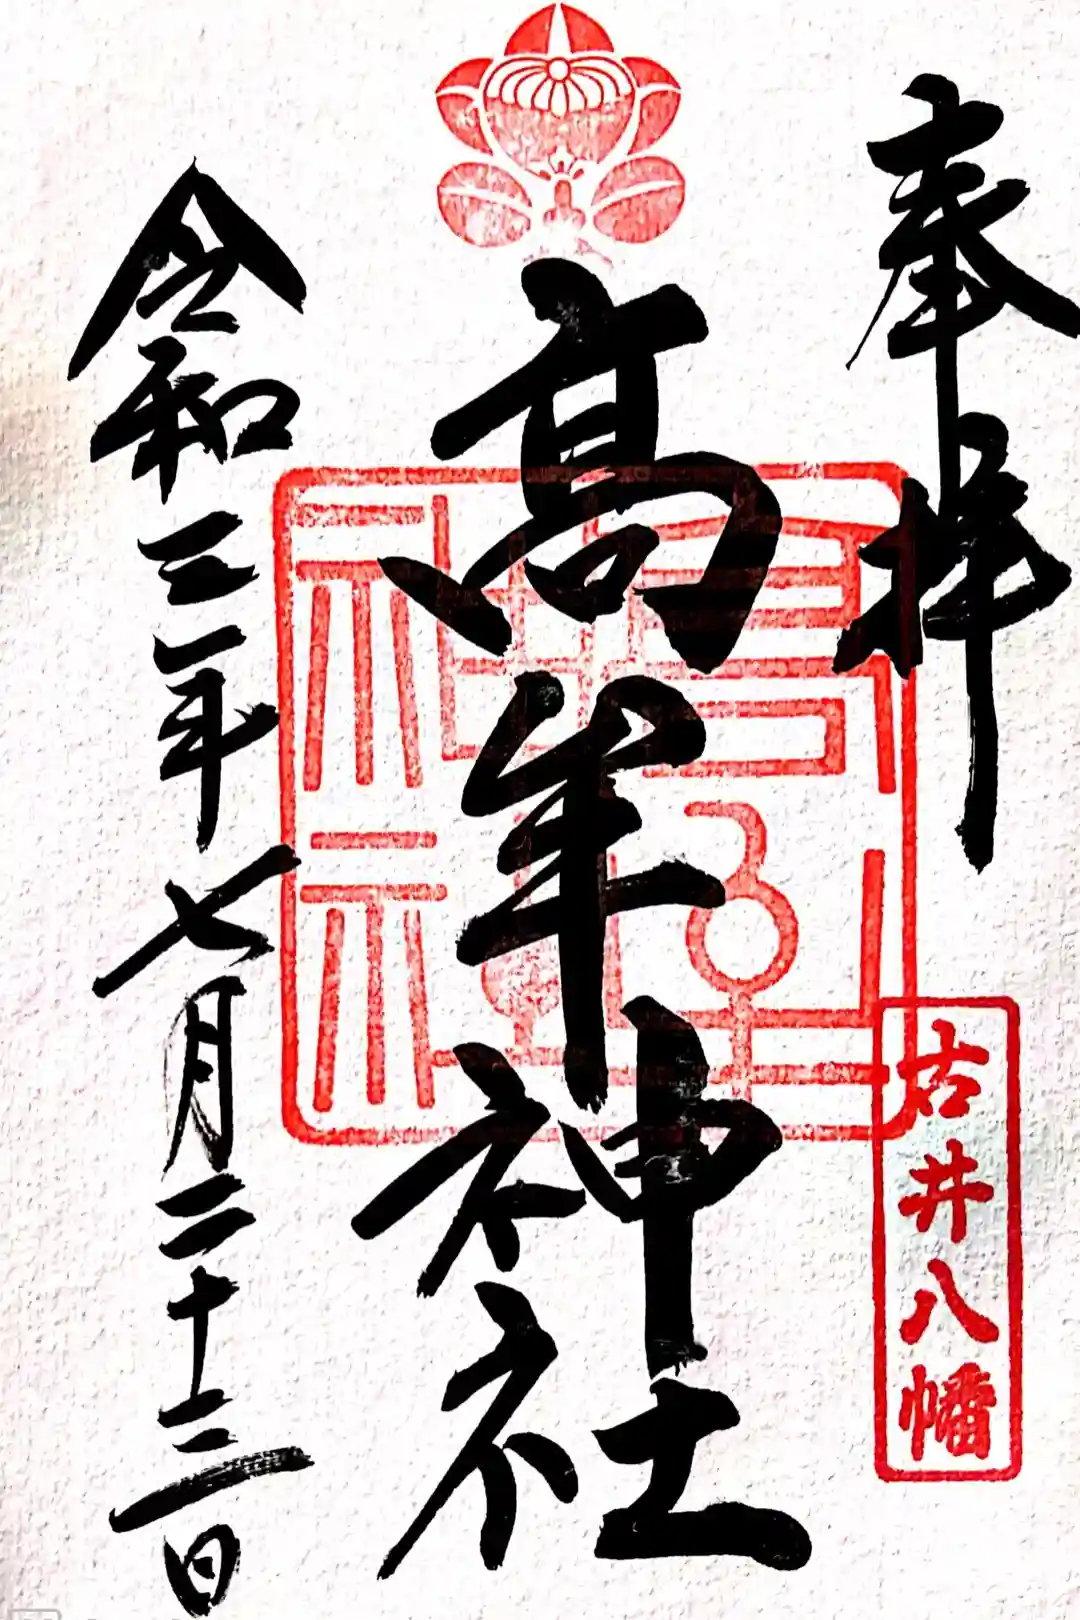 奉拝
古井八幡
高牟神社
令和三年七月二十三日